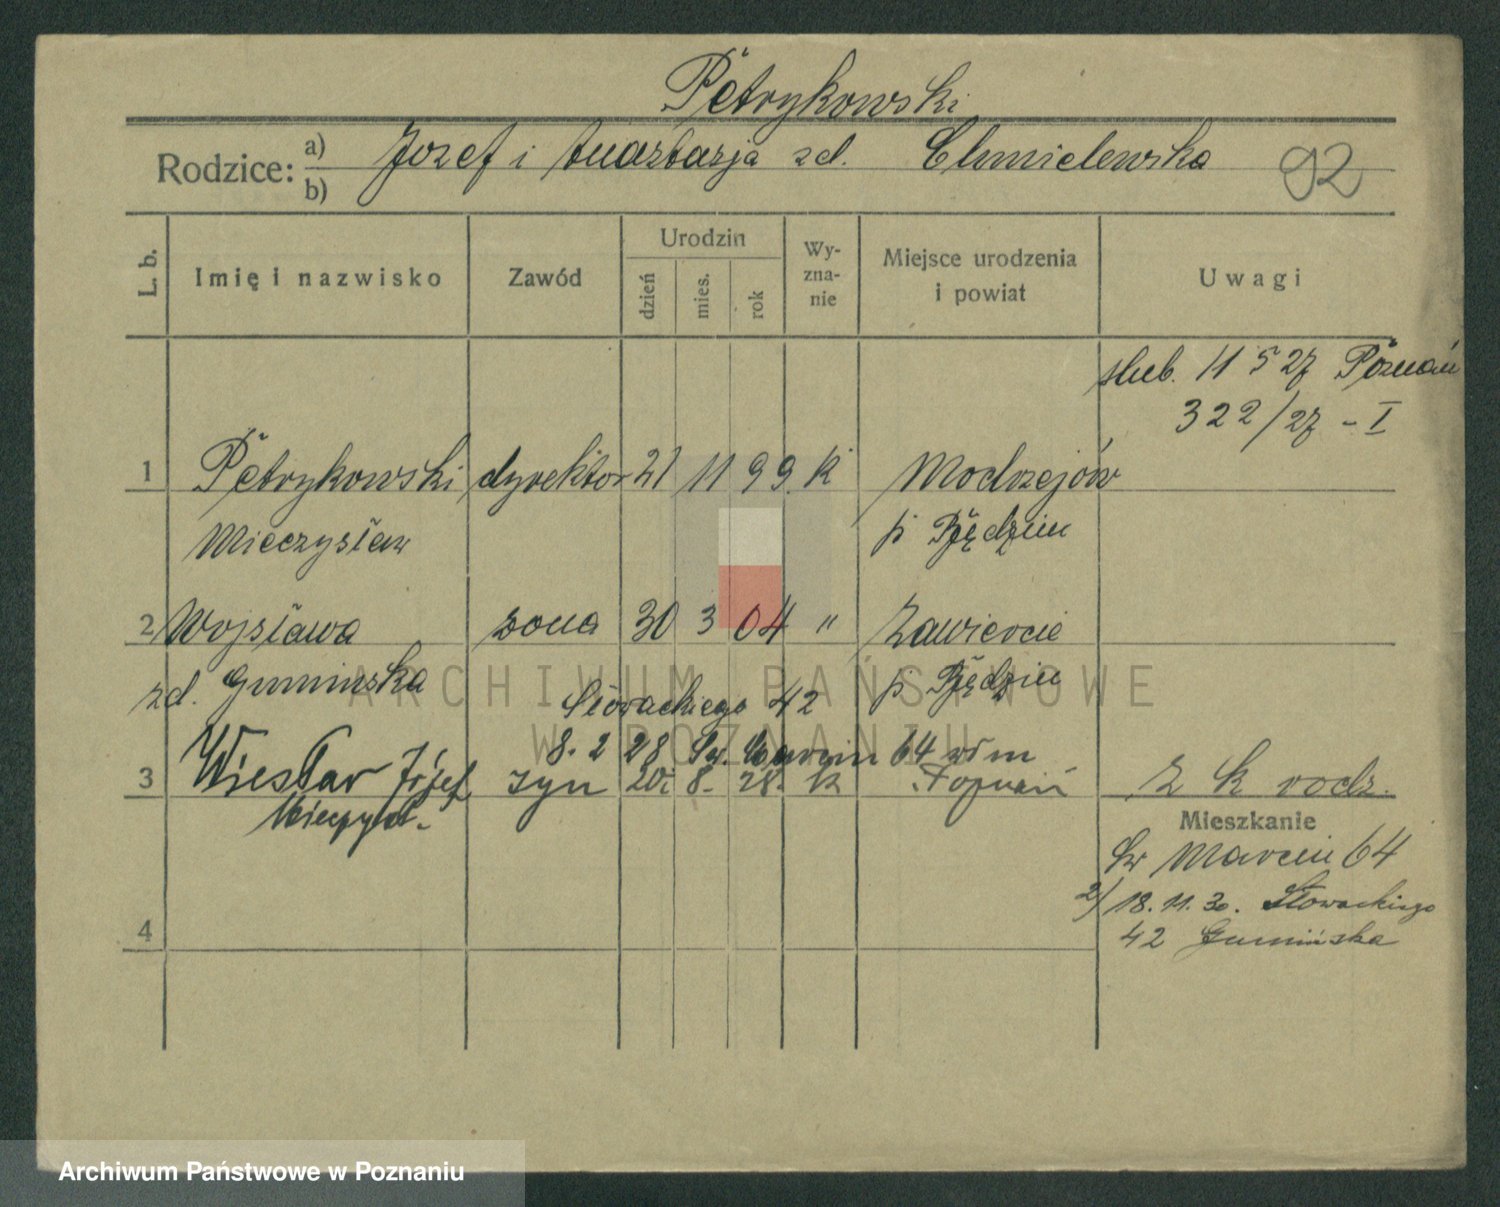 Petrykowski
Rodzice: a) Jozef i Anastazja zd. Chmielewska 92
b)
L. b. Imię i nazwisko Zawód Urodzin dzień mies. rok Wy-zna-nie Miejsce urodzenia i powiat Uwagi
slub. 11 5 27 Poznań
322/27 - I
1 Petrykowski dyrektor 21 11 99 k Modrzejów
Mieczysław p Będzin
2 Wojsława zona 30 3 04 " Zawiercie
zd. Gumińska p Będzin
Słowackiego 42
8. 2 28 Sw. Marcin 64
3 Wiesław Józef syn 20. 8. 28. k Poznań z k rodz.
Mieczysł.
Mieszkanie
Sw Marcin 64
2/ 18. 11. 30. Słowackiego
4
42 Gumińska
ARCHIWUM PAŃSTWOWE
W POZNANIU
Archiwum Państwowe w Poznaniu